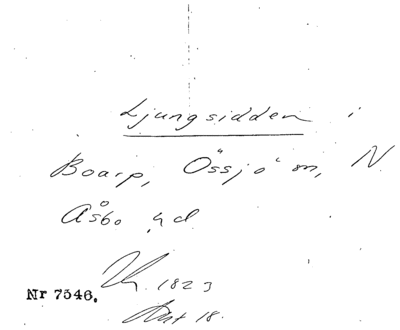 Ljungsidden i
Boarp, Össjö sn, N
Åsbo hd
1823
Nr 7546.
18.